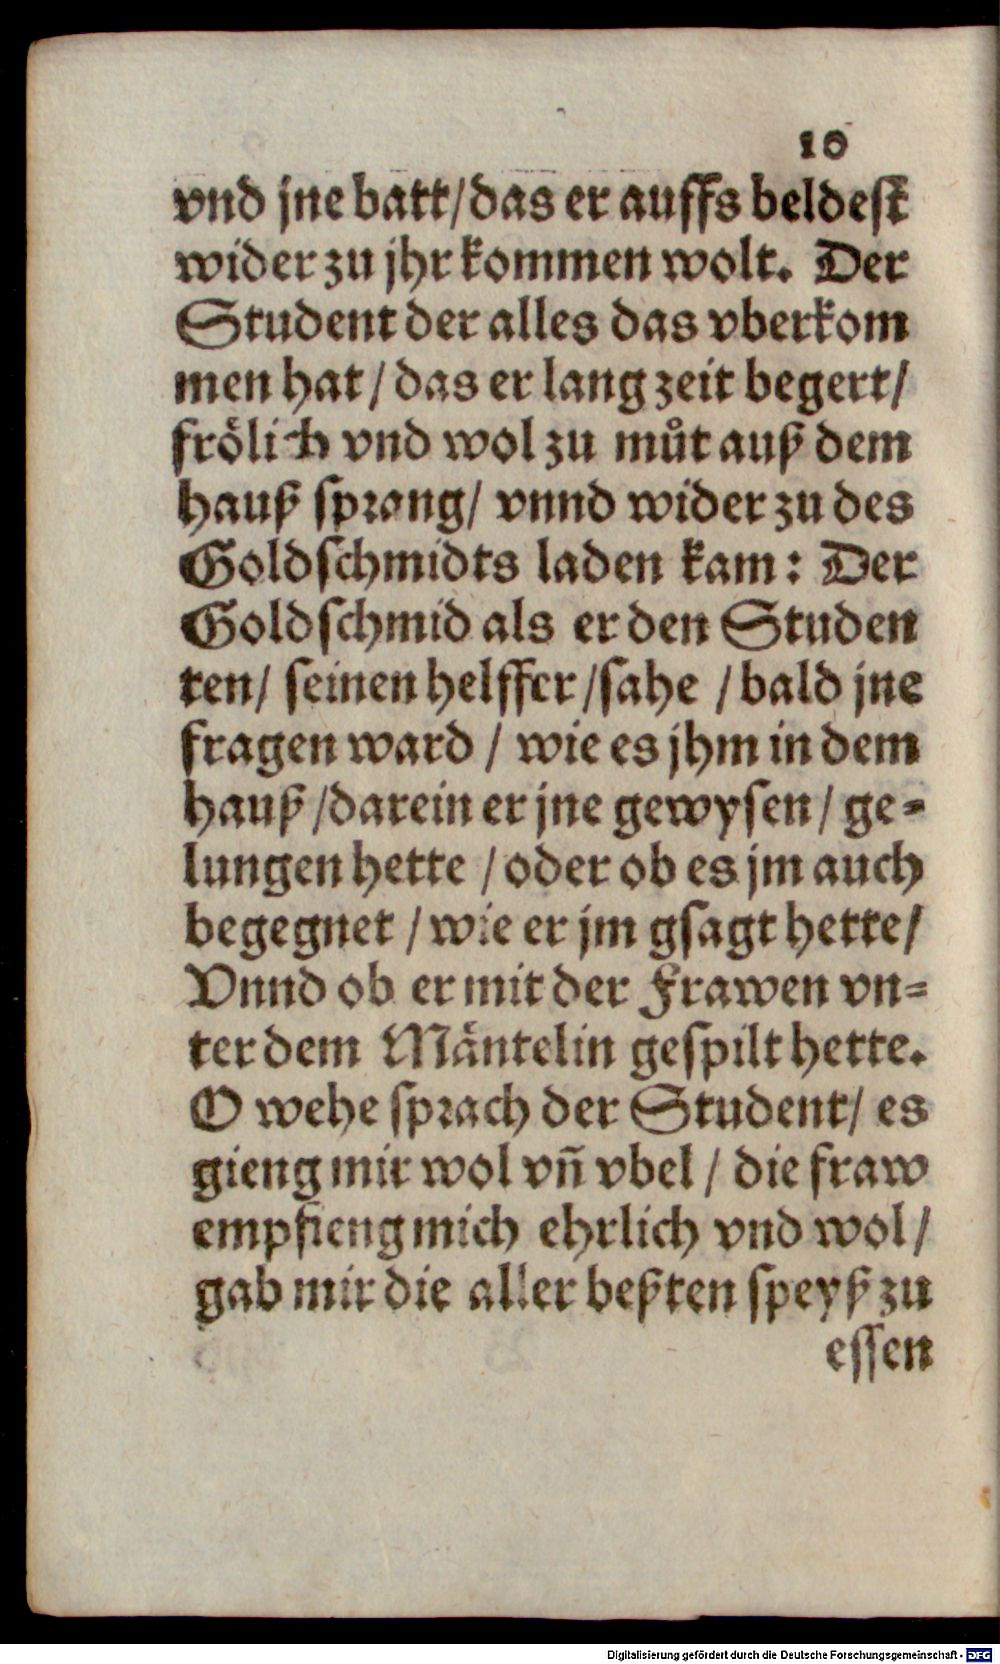 10
vnd jne batt/das er auffs beldest
wider zu jhr kommen wolt. Der
Student der alles das vberkom
men hat / das er lang zeit begert/
frölich vnd wol zu můt auß dem
hauß sprang/ vnnd wider zu des
Goldschmidts laden kam: Der
Goldschmid als er den Studen
ten/ seinen helffer /sahe / bald jne
fragen ward / wie es jhm in dem
hauß /darein er jne gewysen/ ge-
lungen hette / oder ob es jm auch
begegnet / wie er jm gsagt hette/
Vnnd ob er mit der Frawen vn-
ter dem Mäntelin gespilt hette.
O wehe sprach der Student/ es
gieng mir wol vñ vbel / die fraw
empfieng mich ehrlich vnd wol/
gab mir die aller beßten speyß zu
essen
Digitalisierung gefördert durch die Deutsche Forschungsgemeinschaft - DFG